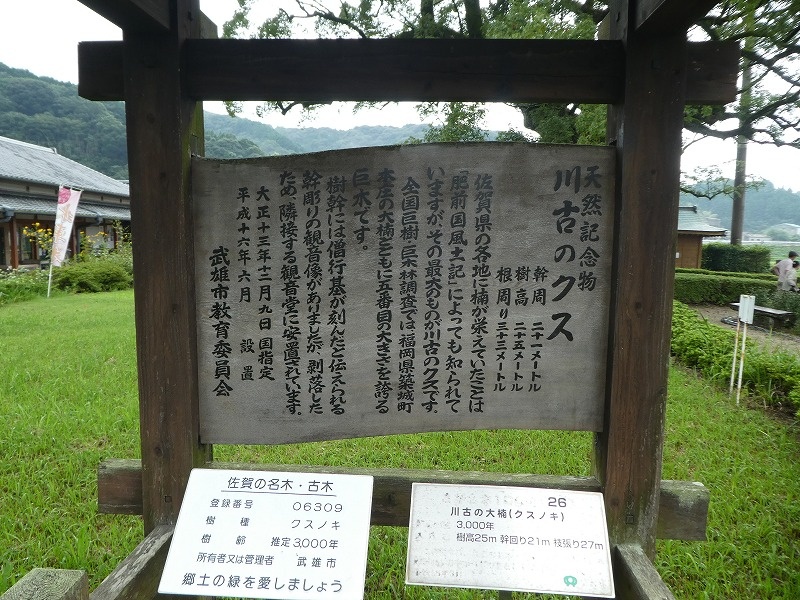 天然記念物
川古のクス
幹周 二十一メートル
樹高 二十五メートル
根周り三十三メートル
佐賀県の各地に楠が栄えていたことは
「肥前国風土記」によっても知られて
いますが、その最大のものが川古のクスです。
全国巨樹・巨木林調査では、福岡県築城町
本庄の大楠とともに五番目の大きさを誇る
巨木です。
樹幹には僧行基が刻んだと伝えられる
幹彫りの観音像がありましたが、剥落した
ため、隣接する観音堂に安置されています。
大正十三年十二月九日国指定
平成十六年六月 設置
武雄市教育委員会
佐賀の名木・古木
登録番号 06309
樹種 クスノキ
樹齢 推定3,000年
所有者又は管理者 武雄市
郷土の緑を愛しましょう
26
川古の大楠(クスノキ)
3,000年
樹高25m 幹回り21m 枝張り27m